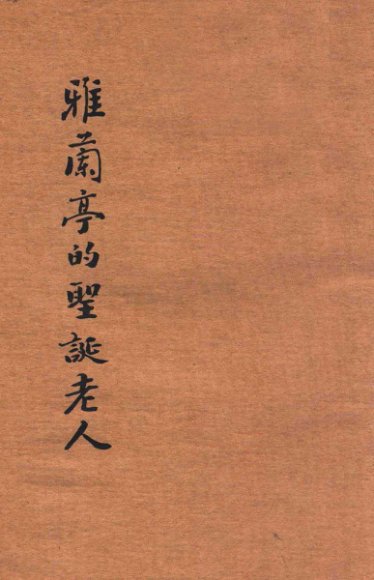 雅蘭亭的聖誕老人